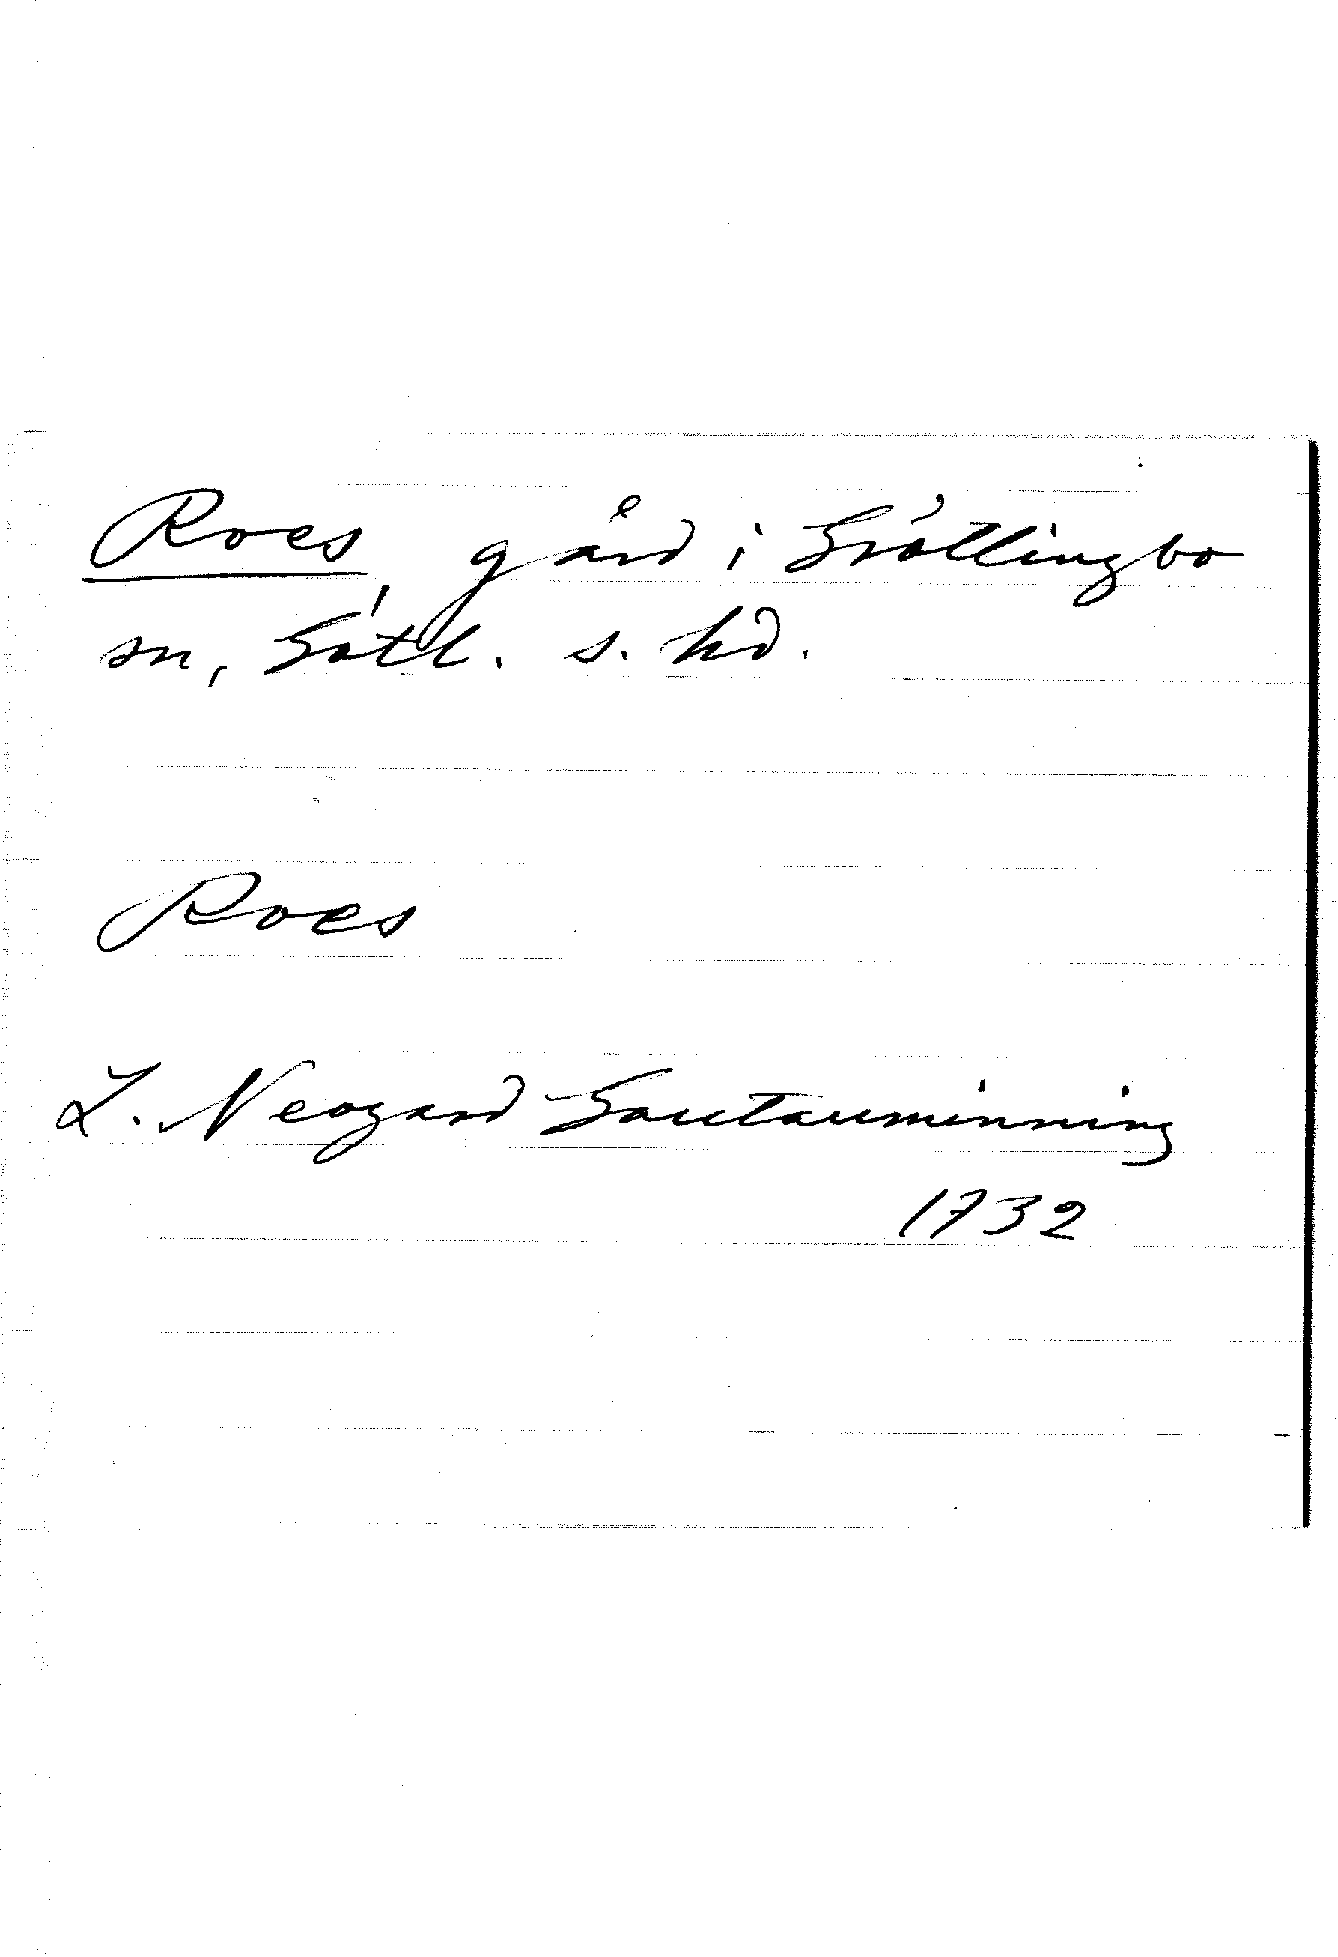 Roes, gård i Grötlingbo
sn, Gotl. s. hd.
Roes
L. Neogard Gautauminning
1732